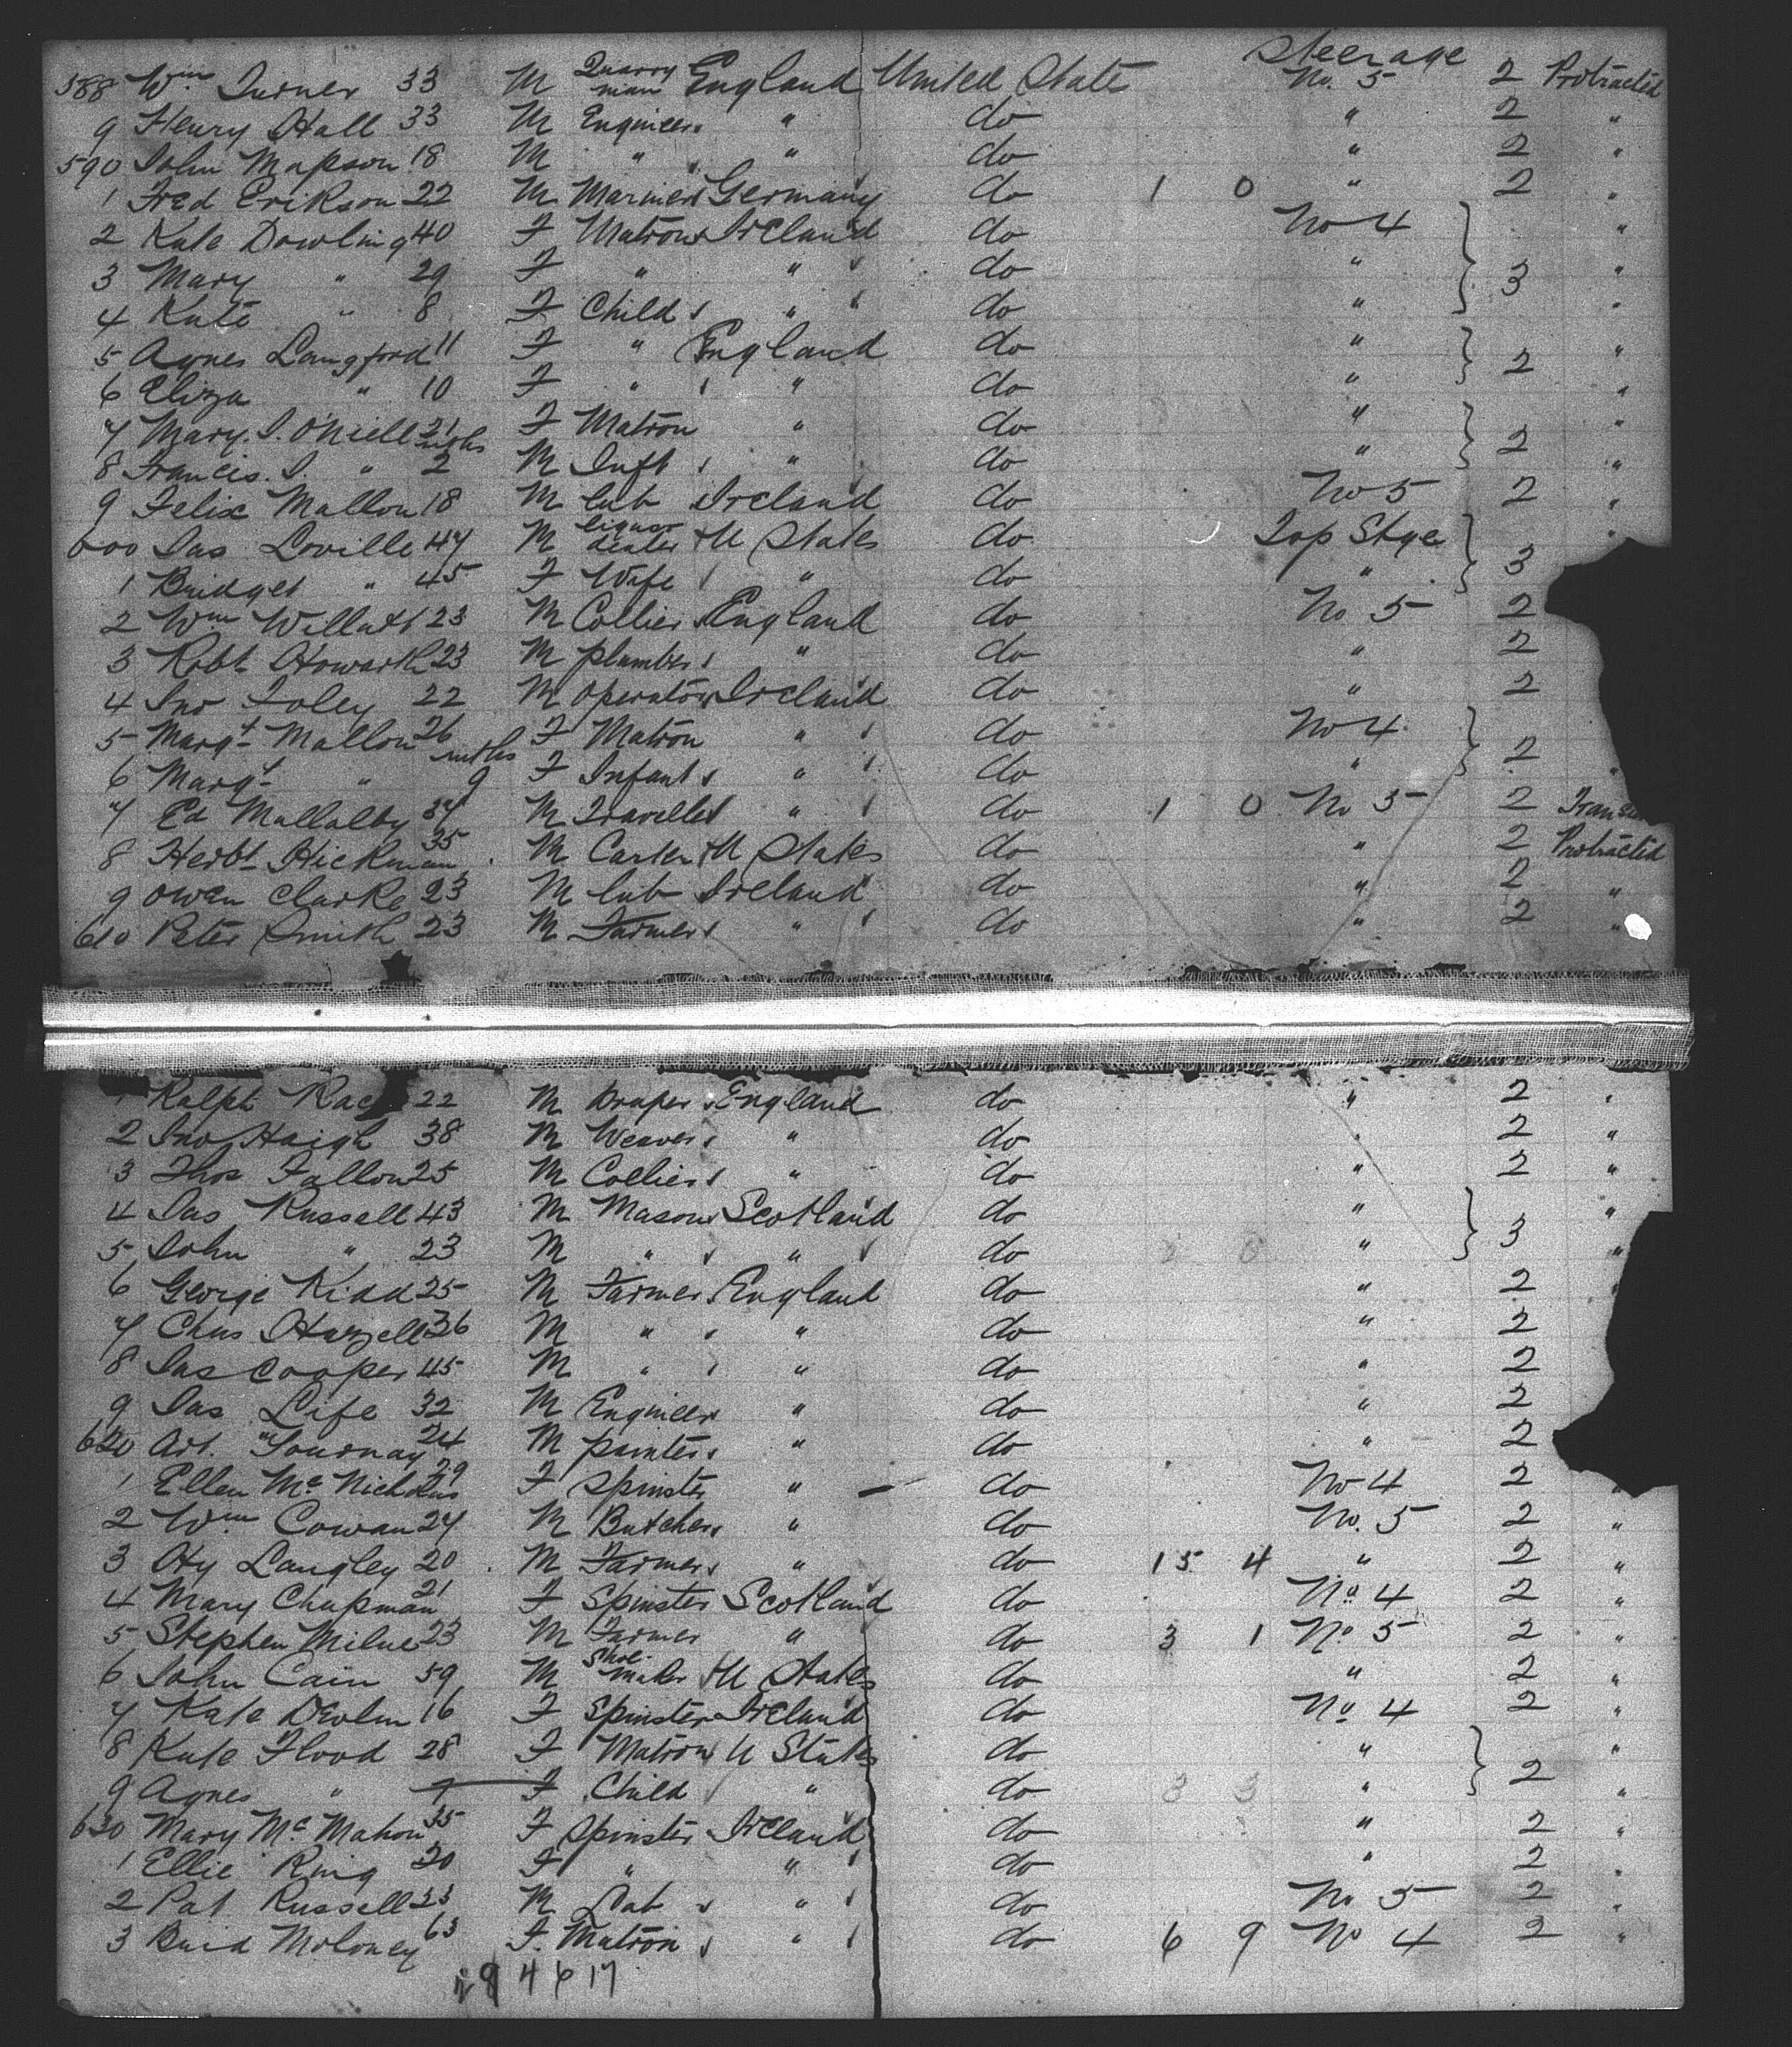 Steerage
588 Wm Turner 33 M Quarryman England United States No. 5 2 Protracted
9 Henry Hall 33 M Engineer " do " 2 "
590 John Mapson 18 M " " do " 2 "
1 Fred Erikson 22 M Mariner Germany do 1 0 " 2 "
2 Kate Dowling 40 F Matron Ireland do No 4 "
3 Mary " 29 F " " do " 3 "
4 Kate " 8 F Child " do " "
5 Agnes Langford 11 F " England do " "
6 Eliza " 10 F " " do " 2 "
7 Mary. J. O'Niell 21 F Matron " do " "
8 Francis. J. " 2 mths M Inft " do " 2 "
9 Felix Mallon 18 M Lab Ireland do No 5 2 "
600 Jas Loville 47 M Liquor dealer U States do Top Stge "
1 Bridget " 45 F Wife " do " 3
2 Wm Willatt 23 M Collier England do No 5 2
3 Robt Howarth 23 M Plumber " do " 2
4 Jno Foley 22 M Operator Ireland do " 2
5 Margt Mallon 26 F Matron " do No 4
6 Margt " 9 mths F Infant " do " 2 "
7 Ed Mullalby 37 M Traveller " do 1 0 No 5 2
8 Herbt Hickman 35 M Carter U States do " 2 Protracted
9 Owen Clarke 23 M Lab Ireland do " 2 "
610 Peter Smith 23 M Farmer " do " 2 "
Ralph 22 M Draper England do " 2 "
2 Jno Haigh 38 M Weaver " do " 2 "
3 Thos Fallon 25 M Collier " do " 2 "
4 Jas Russell 43 M Mason Scotland do " "
5 John " 23 M " " do " 3 "
6 George Kidd 25 M Farmer England do " 2
7 Chas Hazell 36 M " " do " 2
8 Jas Cooper 45 M " " do " 2
9 Jas Life 32 M Engineer " do " 2
620 Art. Tournay 24 M Painter " do " 2
1 Ellen McNicholas 29 F Spinster " do No 4 2 "
2 Wm Cowan 27 M Butcher " do No. 5 2 "
3 Hy Langley 20 M Farmer " do 15 4 " 2 "
4 Mary Chapman 21 F Spinster Scotland do No 4 2 "
5 Stephen Milne 23 M Farmer " do 3 1 No 5 2 "
6 John Cain 59 M Shoemaker U States do " 2 "
7 Kate Devlin 16 F Spinster Ireland do No 4 2 "
8 Kate Flood 28 F Matron U States do " "
9 Agnes " 7 F Child " do 3 3 " 2 "
630 Mary McMahon 35 F Spinster Ireland do " 2 "
1 Ellie King 20 F " " do " 2 "
2 Pat Russell 23 M Lab " do No 5 2 "
3 Brid Moloney 63 F. Matron " do 6 9 No 4 2 "